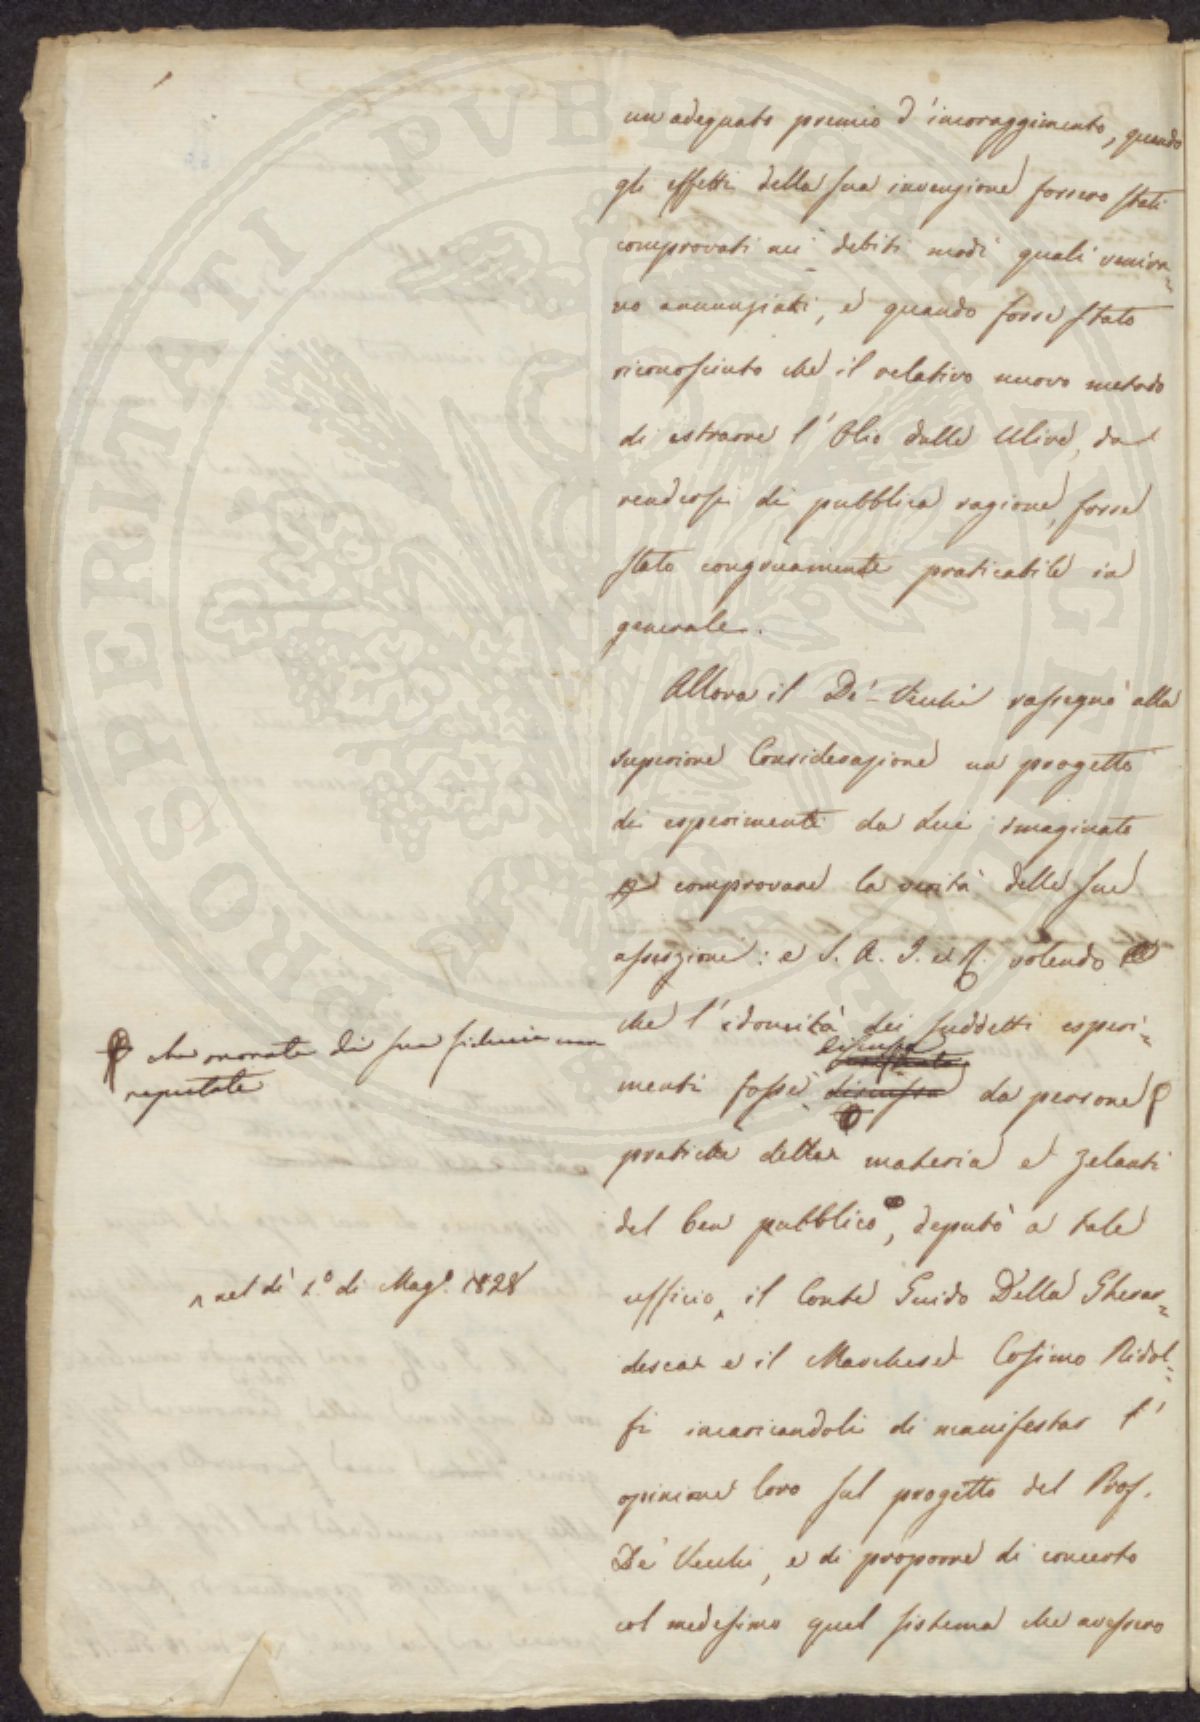 un adeguato premio d'incoraggimento, quando
gli effetti della sua invenzione fossero stati
comprovati nei debiti modi quali veniva=
no annunziati, e quando fosse stato
riconosciuto che il relativo nuovo metodo
di estrarre l'Olio dalle Ulive, da
rendersi di pubblica ragione, fosse
stato congruamente praticabile in
generale.
Allora il De'-Vecchi rassegnò alla
superiore Considerazione un progetto
di esperimenti da lui imaginato
comprovare la verità delle sue
asserzioni: e S. A. I. e R. volendo
che l'idoneità dei suddetti esperi=
discussa
menti fosse discussa da persone
che onorate di sua fiducia
reputate
pratiche della materia e zelanti
del ben pubblico, deputò a tale
nel dì 1.º di Mag.º 1828
ufficio, il Conte Guido Della Gherar=
desca e il Marchese Cosimo Ridol=
fi incaricandoli di manifestar l'
opinione loro sul progetto del Prof.
De' Vecchi, e di proporre di concerto
col medesimo quel sistema che avessero
PROSPERITATI PVBLICAE AVGENDAE